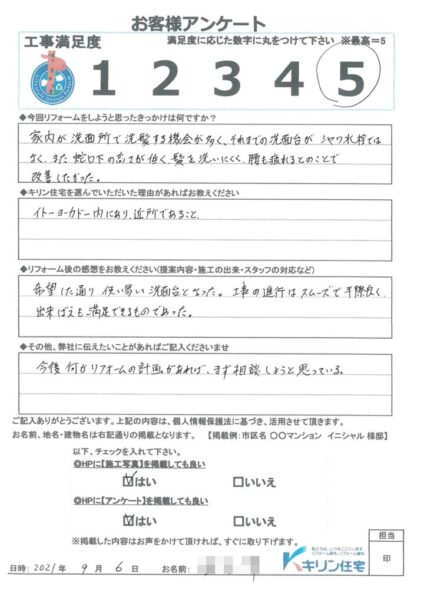 お客様アンケート
工事満足度
満足度に応じた数字に丸をつけて下さい ※最高＝5
1 2 3 4 5
◆今回リフォームをしようと思ったきっかけは何ですか?
家内が洗面所で洗髪する機会が多く、それまでの洗面台がシャワ水栓では
なく、また蛇口下の高さが低く、髪を洗いにくく、腰も疲れるとのことで
改善したかった。
◆キリン住宅を選んでいただいた理由があればお教えください
イトーヨーカドー内にあり、近所であること、
◆リフォーム後の感想をお教えください(提案内容・施工の出来・スタッフの対応など)
希望した通り 使い易い洗面台となった。工事の進行はスムーズで手際良く、
出来ばえも満足できるものであった。
◆その他、弊社に伝えたいことがあればご記入くださいませ
今後何かリフォームの計画があれば、まず相談しようと思っている。
ご記入ありがとうございます。上記の内容は、個人情報保護法に基づき、活用させて頂きます。
お名前、地名・建物名は右記通りの掲載となります。 【掲載例：市区名 〇〇マンション イニシャル 様邸】
以下、チェックを入れて下さい。
◎HPに【施工写真】を掲載しても良い
☑はい □いいえ
◎HPに【アンケート】を掲載しても良い
☑はい □いいえ
※掲載した内容はお声をかけて頂ければ、すぐに取り下げます。
担当
印
キリン住宅
日時：2021年 9月 6日 お名前：